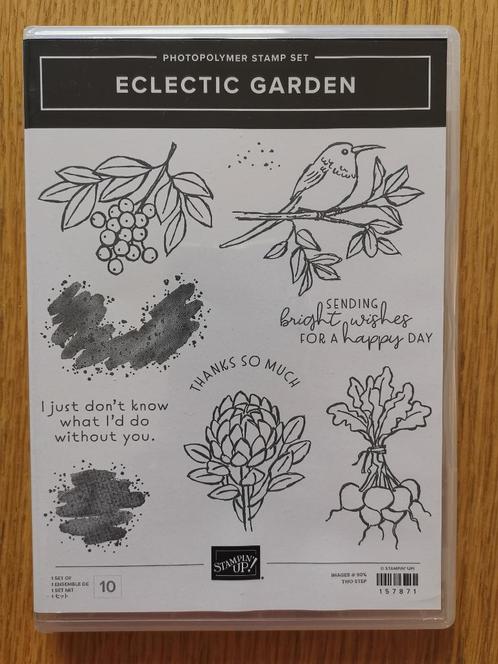 PHOTOPOLYMER STAMP SET
ECLECTIC GARDEN
SENDING
bright wishes
FOR A happy DAY
THANKS SO MUCH
I just don't know
what I'd do
without you.
STAMPIN'
UP!
1 SET OF
1 ENSEMBLE DE
1 SET MIT
1セット
10
IMAGES @ 90%
TWO STEP
© STAMPIN' UP!
157871